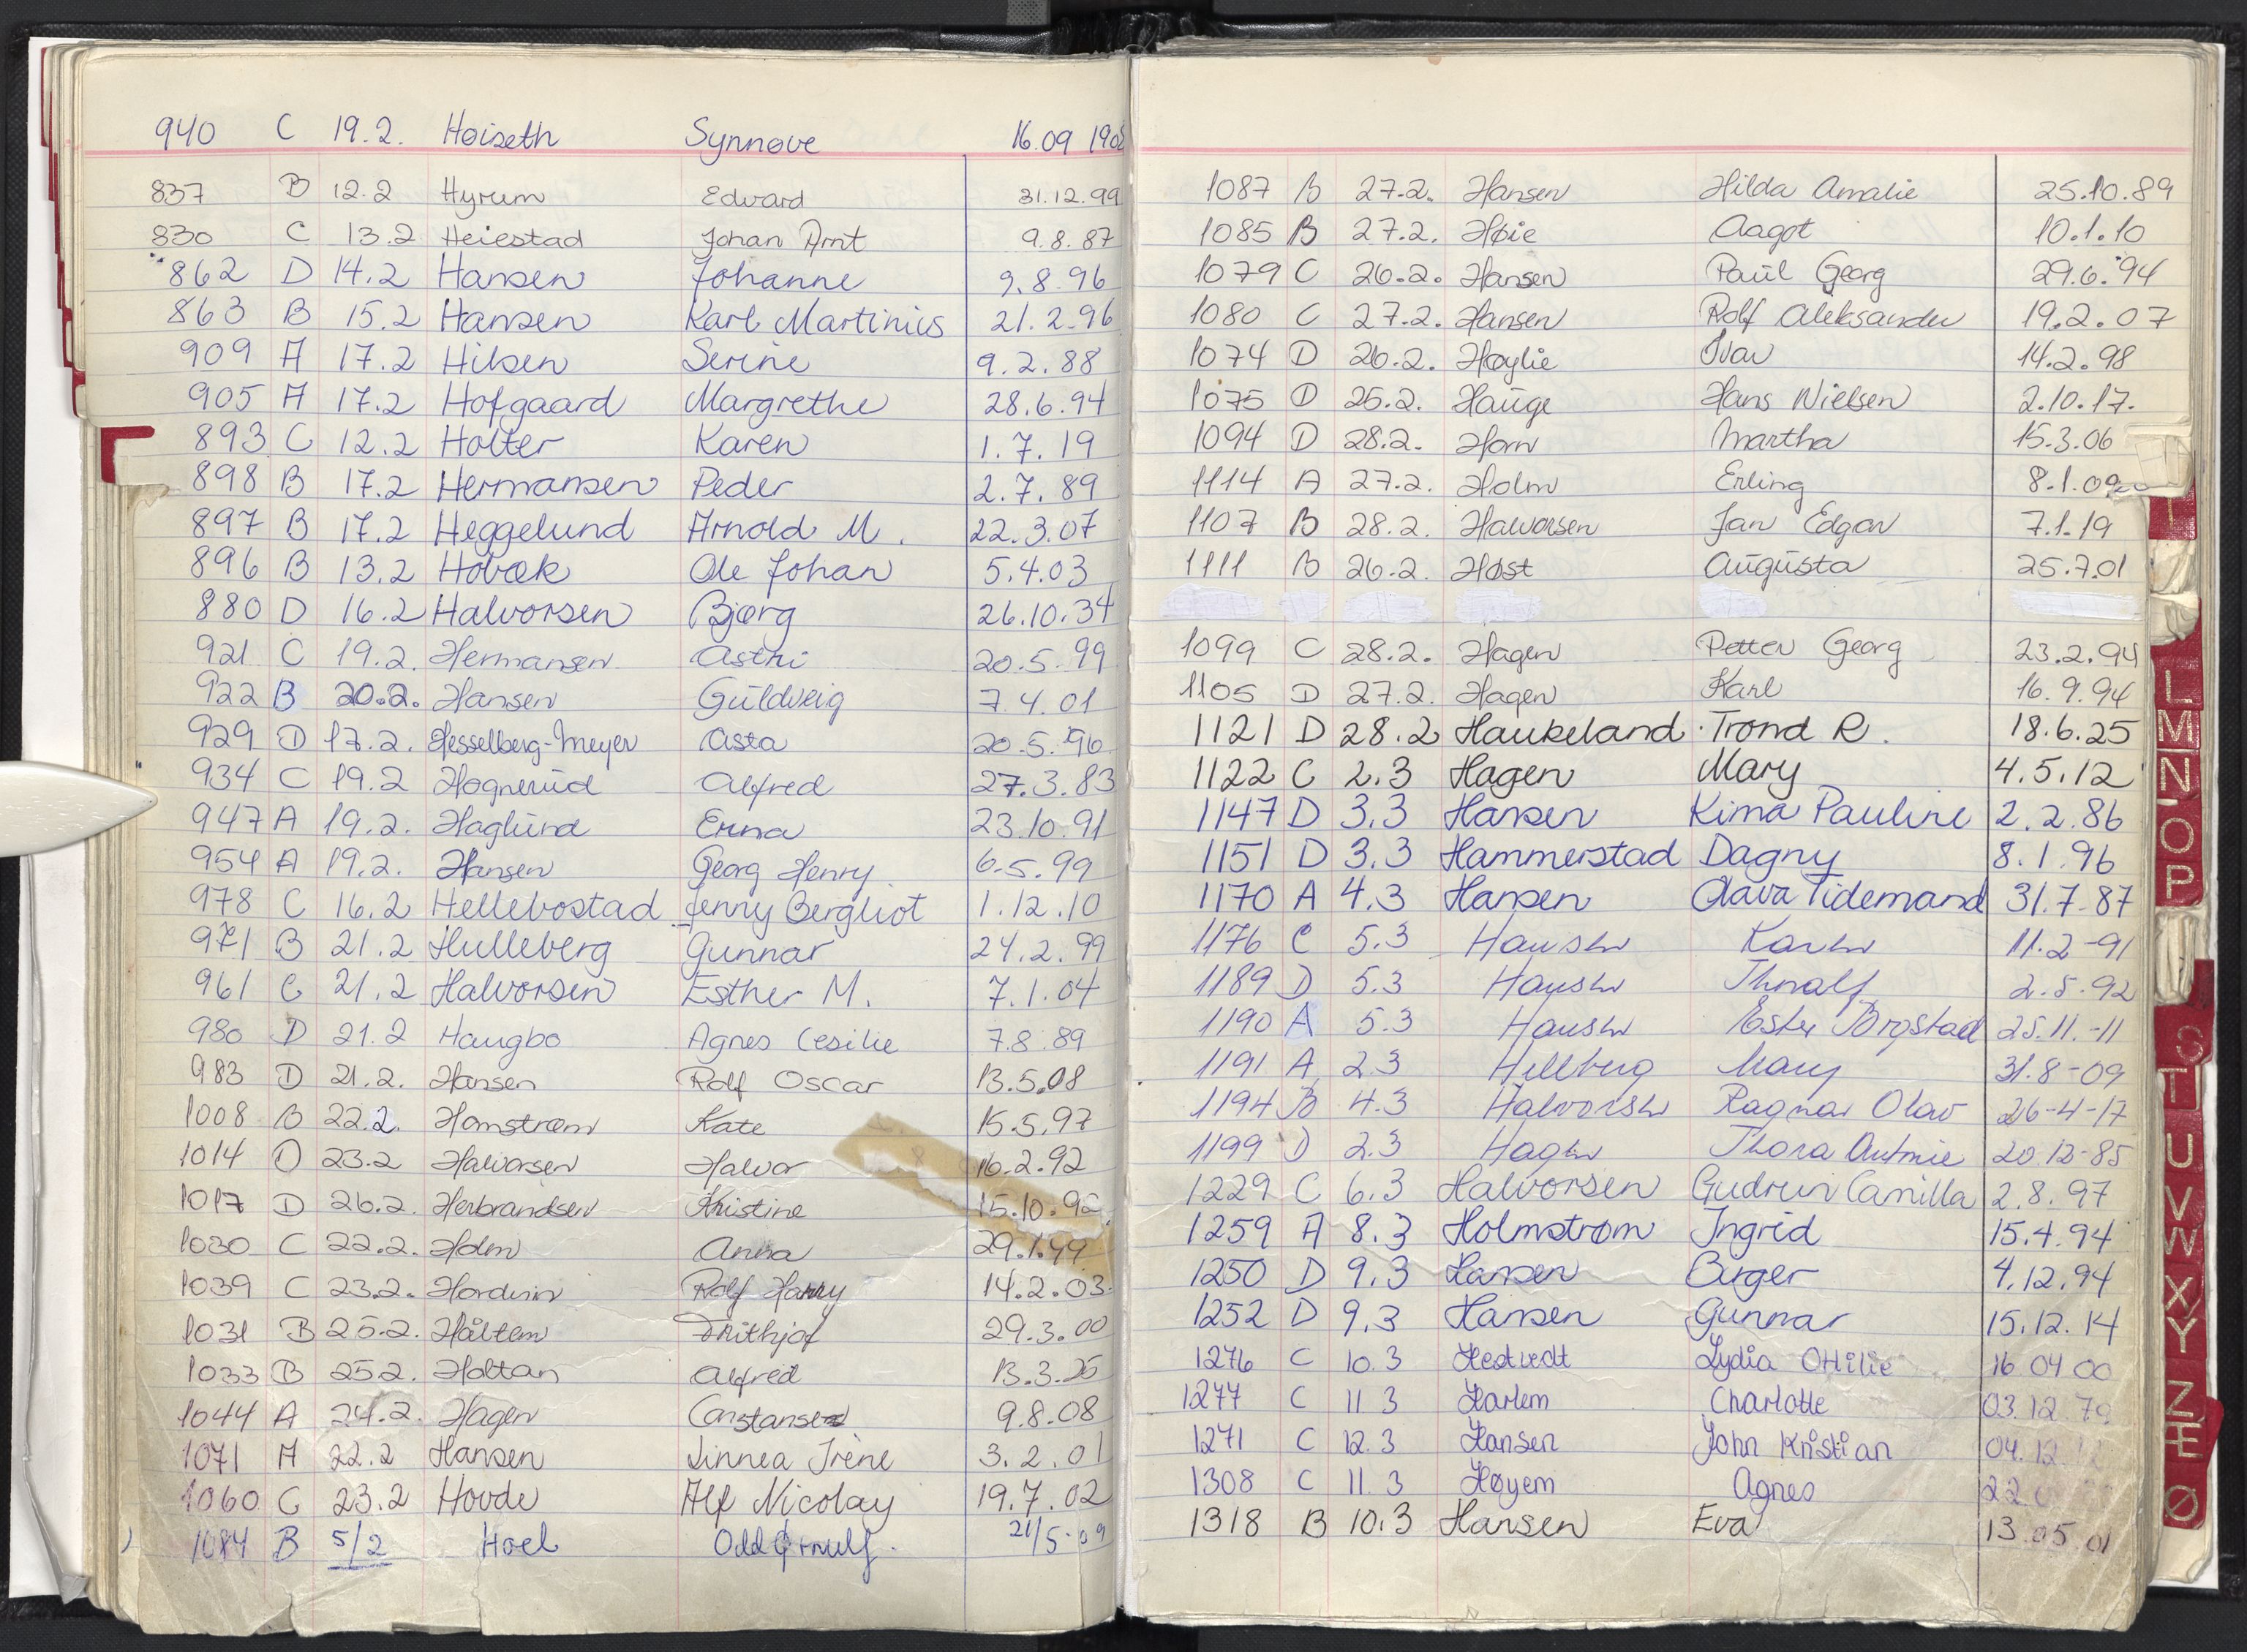 940 C 19.2. Høiseth Synnøve 16.09 190
837 B 12.2 Hyrum Edvard 31.12.99
830 C 13.2 Heiestad Johan Arnt 9.8.87
862 D 14.2 Hansen Johanne 9.8.96
863 B 15.2 Hansen Karl Martinius 21.2.96
909 A 17.2 Hilsen Serine 9.2.88
905 A 17.2 Hofgaard Margrethe 28.6.94
893 C 12.2 Holter Karen 1.7.19
898 B 17.2 Hermansen Peder 2.7.89
897 B 17.2 Heggelund Arnold M. 22.3.07
896 B 13.2 Hobæk Ole Johan 5.4.03
880 D 16.2 Halvorsen Bjørg 26.10.34
921 C 19.2. Hermansen Astri 20.5.99
922 B 20.2. Hansen Guldveig 7.4.01
929 D 17.2. Hesselberg-Meyer Asta 20.5.96
934 C 19.2 Høgnerud Alfred 27.3.83
947 A 19.2. Haglund Erna 23.10.91
954 A 19.2. Hansen Georg Henry 6.5.99
978 C 16.2 Hellebostad Jenny Bergliot 1.12.10
971 B 21.2 Hulleberg Gunnar 24.2.99
961 C 21.2 Halvorsen Esther M. 7.1.04
980 D 21.2 Haugbo Agnes Cesilie 7.8.89
983 D 21.2. Hansen Rolf Oscar 13.5.08
1008 B 22.2. Homstrøm Kate 15.5.97
1014 D 23.2 Halvorsen Halvor 16.2.92
1017 D 26.2. Herbrandsen Kristine 15.10.92
1030 C 22.2. Holm Anna 29.1.99
1039 C 23.2. Hordvin Rolf Harry 14.2.03
1031 B 25.2. Håltem Frithjof 29.3.00
1033 B 25.2. Holtan Alfred 13.3.25
1044 A 24.2. Hagen Constanse 9.8.08
1071 A 22.2 Hansen Linnea Irene 3.2.01
1060 C 23.2 Hovde Alf Nicolay 19.7.02
1084 B 5/2 Hoel Odd Arnulf. 21/5-09
1087 B 27.2. Hansen Hilda Amalie 25.10.89
1085 B 27.2. Høie Aagot 10.1.10
1079 C 26.2. Hansen Paul Georg 29.6.94
1080 C 27.2. Hansen Rolf Aleksander 19.2.07
1074 D 26.2. Høylie Ivar 14.2.98
1075 D 25.2. Hauge Hans Nielsen 2.10.17.
1094 D 28.2. Horn Martha 15.3.06
1114 A 27.2. Holm Erling 8.1.09
1107 B 28.2. Halvorsen Jan Edgar 7.1.19
1111 B 26.2. Høst Augusta 25.7.01
1099 C 28.2. Hagen Petter Georg 23.2.94
1105 D 27.2. Hagen Karl 16.9.94
1121 D 28.2 Haukeland Trond R. 18.6.25
1122 C 2.3 Hagen Mary 4.5.12
1147 D 3.3 Hansen Kima Pauline 2.2.86
1151 D 3.3 Hammerstad Dagny 8.1.96
1170 A 4.3 Hansen Olava Tidemand 31.7.87
1176 C 5.3 Hansen Karen 11.2-91
1189 D 5.3 Hansen Thoralf 2.5.92
1190 A 5.3 Hansen Ester Borgstad 25.11.-11
1191 A 2.3 Hellberg Mary 31.8-09
1194 B 4.3 Halvorsen Ragnar Olav 26-4-17
1199 D 2.3 Hagen Thora Antonie 20.12-85
1229 C 6.3 Halvorsen Gudrun Camilla 2.8.97
1259 A 8.3 Holmstrøm Ingrid 15.4.94
1250 D 9.3 Hansen Birger 4.12.94
1252 D 9.3 Hansen Gunnar 15.12.14
1276 C 10.3 Hedtvedt Lydia Ottilie 16 04 00
1277 C 11 3 Harlem Charlotte 03.12.79
1271 C 12.3 Hansen John Kristian 04.12
1308 C 11.3 Høyem Agnes 22
1318 B 10.3 Hansen Eva 13.05.01
I
L
M
N
O
P
S
T
U
V
W
X
Y
Z
Æ
Ø